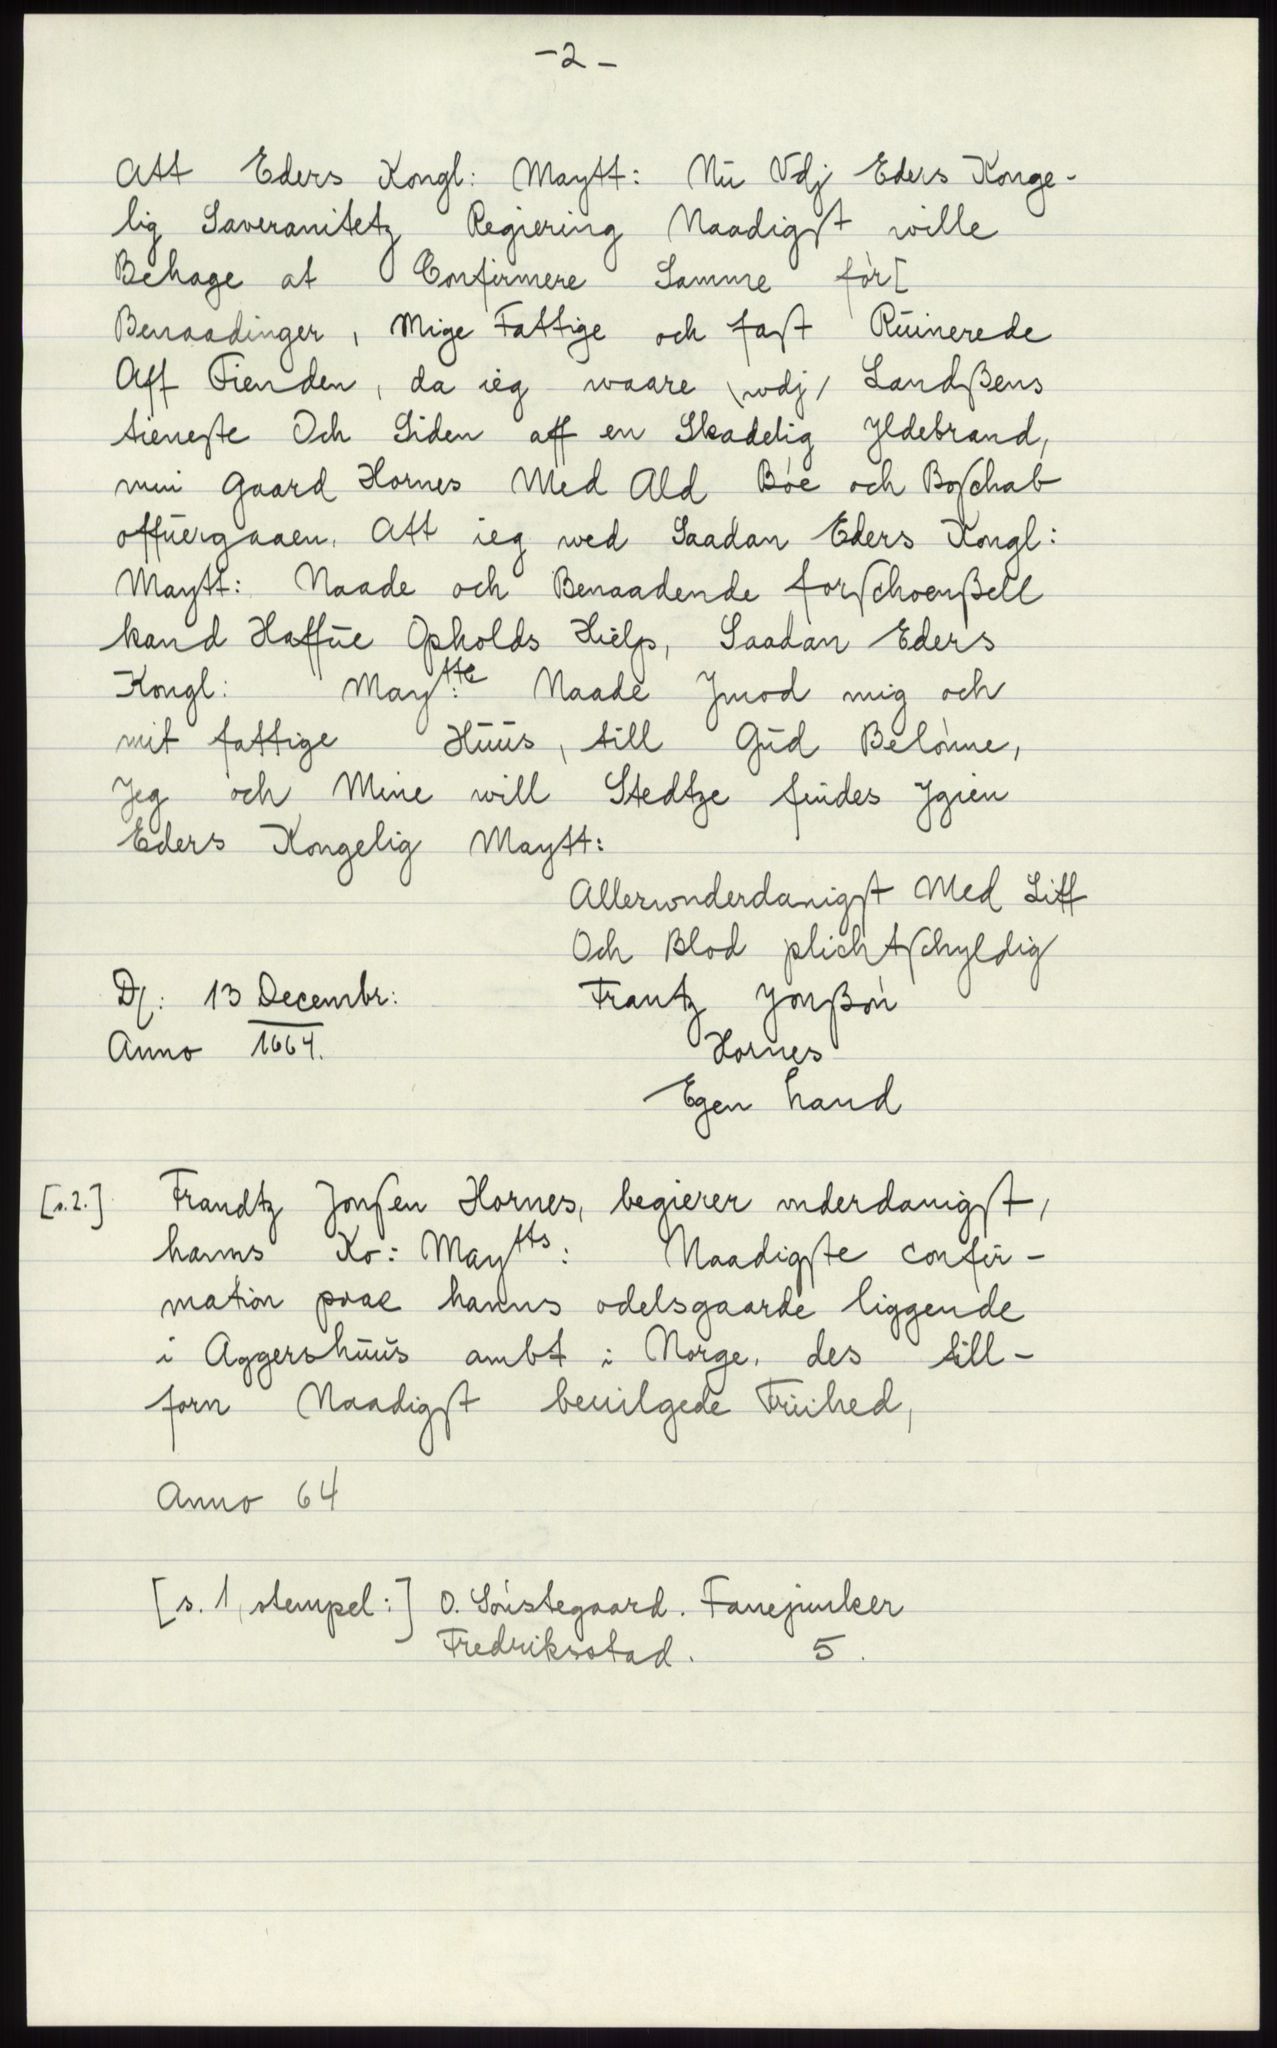 -2-
Att Eders Kongl: Maytt: Nu Vdj Eders Konge-
lig Saveranitetz Regiering Naadigst wille
Behage at Confirmere Samme før[
Benaadinger, Mige Fattige och fast Ruinerede
Aff Fienden, da ieg waare \wdj/ Landßens
tieneste Och Siden aff en Skadelig Jldebrand,
min gaard Hornes Med Ald Bøe och Boschab
offuergaaen. Att ieg wed Saadan Eders Kongl:
Maytt: Naade och Benaadende forschoenßell
kand Haffue Opholds Hielp, Saadan Eders
Kongl: Maytte: Naade Jmod mig och
mit fattige Huus, till Gud Belønne,
Jeg och Mine will Stedtze findes Jgien
Eders Kongelig Maytt:
Allerwnderdanigst Med Liff
Och Blod plichtschyldig
D: 13 Decembr: Frantz Jonßøn
Anno 1664. Hornes
Egen hand
[s.2.] Frandtz Jonsen Hornes, begierer vnderdanigst,
hanns Ko: Maytts: Naadigste confir-
mation paae hanns odelsgaarde liggende
i Aggershuus ambt i Norge, des till-
forn Naadigst beuilgede Friihed,
Anno 64
[s. 1, stempel:] O. Søistegaard. Fanejunker
Fredriksstad. 5.